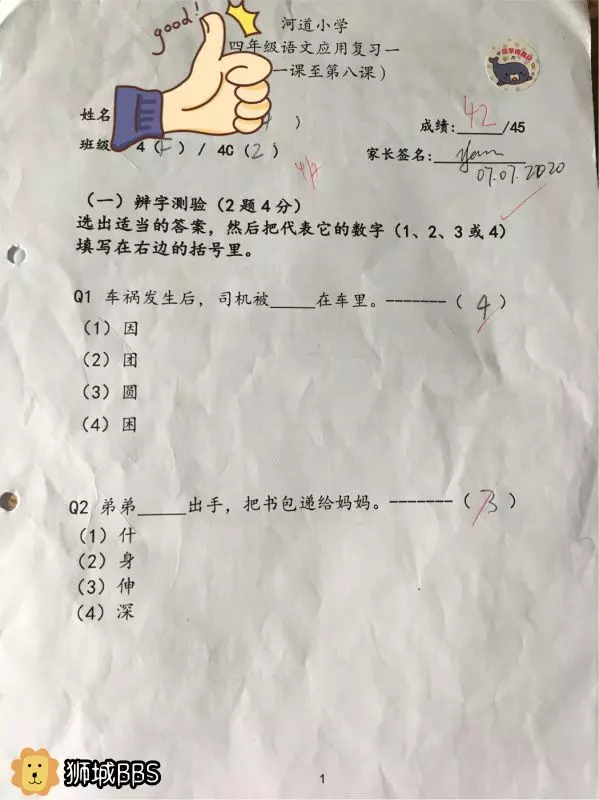 good!
河道小学
四年级语文应用复习一
一课至第八课)
姓名 )
成绩: 42 /45
班级 4( ) / 4C (2)
家长签名:
07.07.2020
4/4
(一) 辨字测验 (2 题 4 分)
选出适当的答案，然后把代表它的数字 (1、2、3 或 4)
填写在右边的括号里。
Q1 车祸发生后，司机被____在车里。-------( 4 )
(1) 因
(2) 团
(3) 圆
(4) 困
Q2 弟弟_____出手，把书包递给妈妈。-------( 3 )
(1) 什
(2) 身
(3) 伸
(4) 深
1
狮城BBS